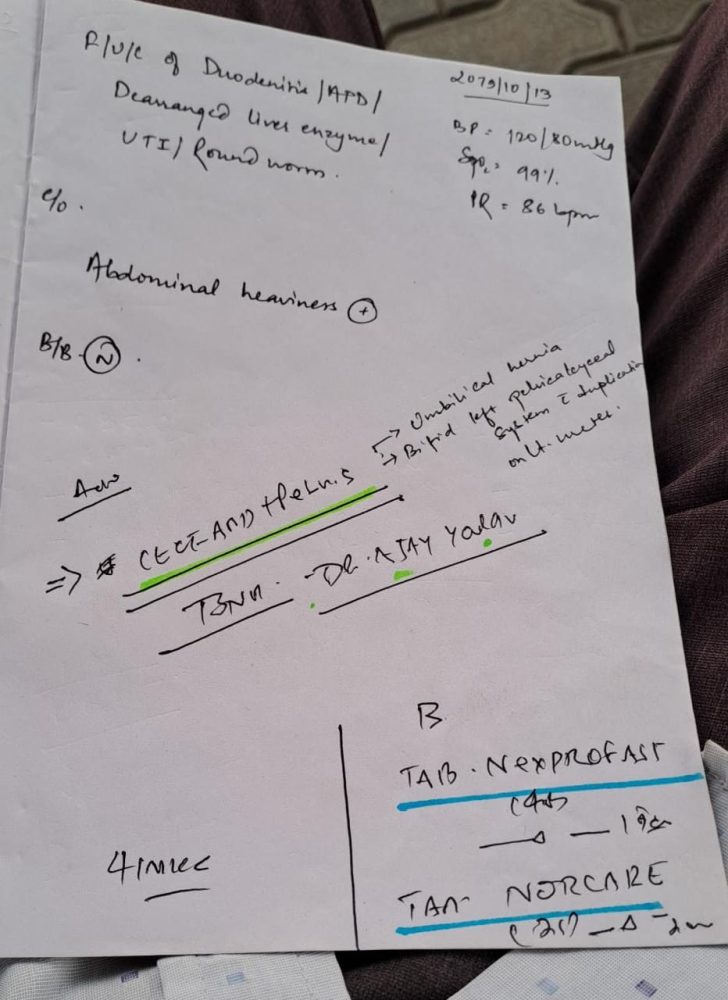 F/U/C of Duodenitis/APD/
Dearranged liver enzyme/
UTI/Round worm.
2079/10/13
BP = 120/80mmHg
SpO2 = 99%
PR = 86 bpm
c/o.
Abdominal heaviness (+)
B/B - (N).
Adv
→ Umbilical hernia
→ Bifid left pelvicalyceal
system c duplication
on lt. ureter.
=> * CECT-ABD + Pelvis
- DR. AJAY Yadav
TAB. NEXPROFAST
(40)
TAB- NORCARE